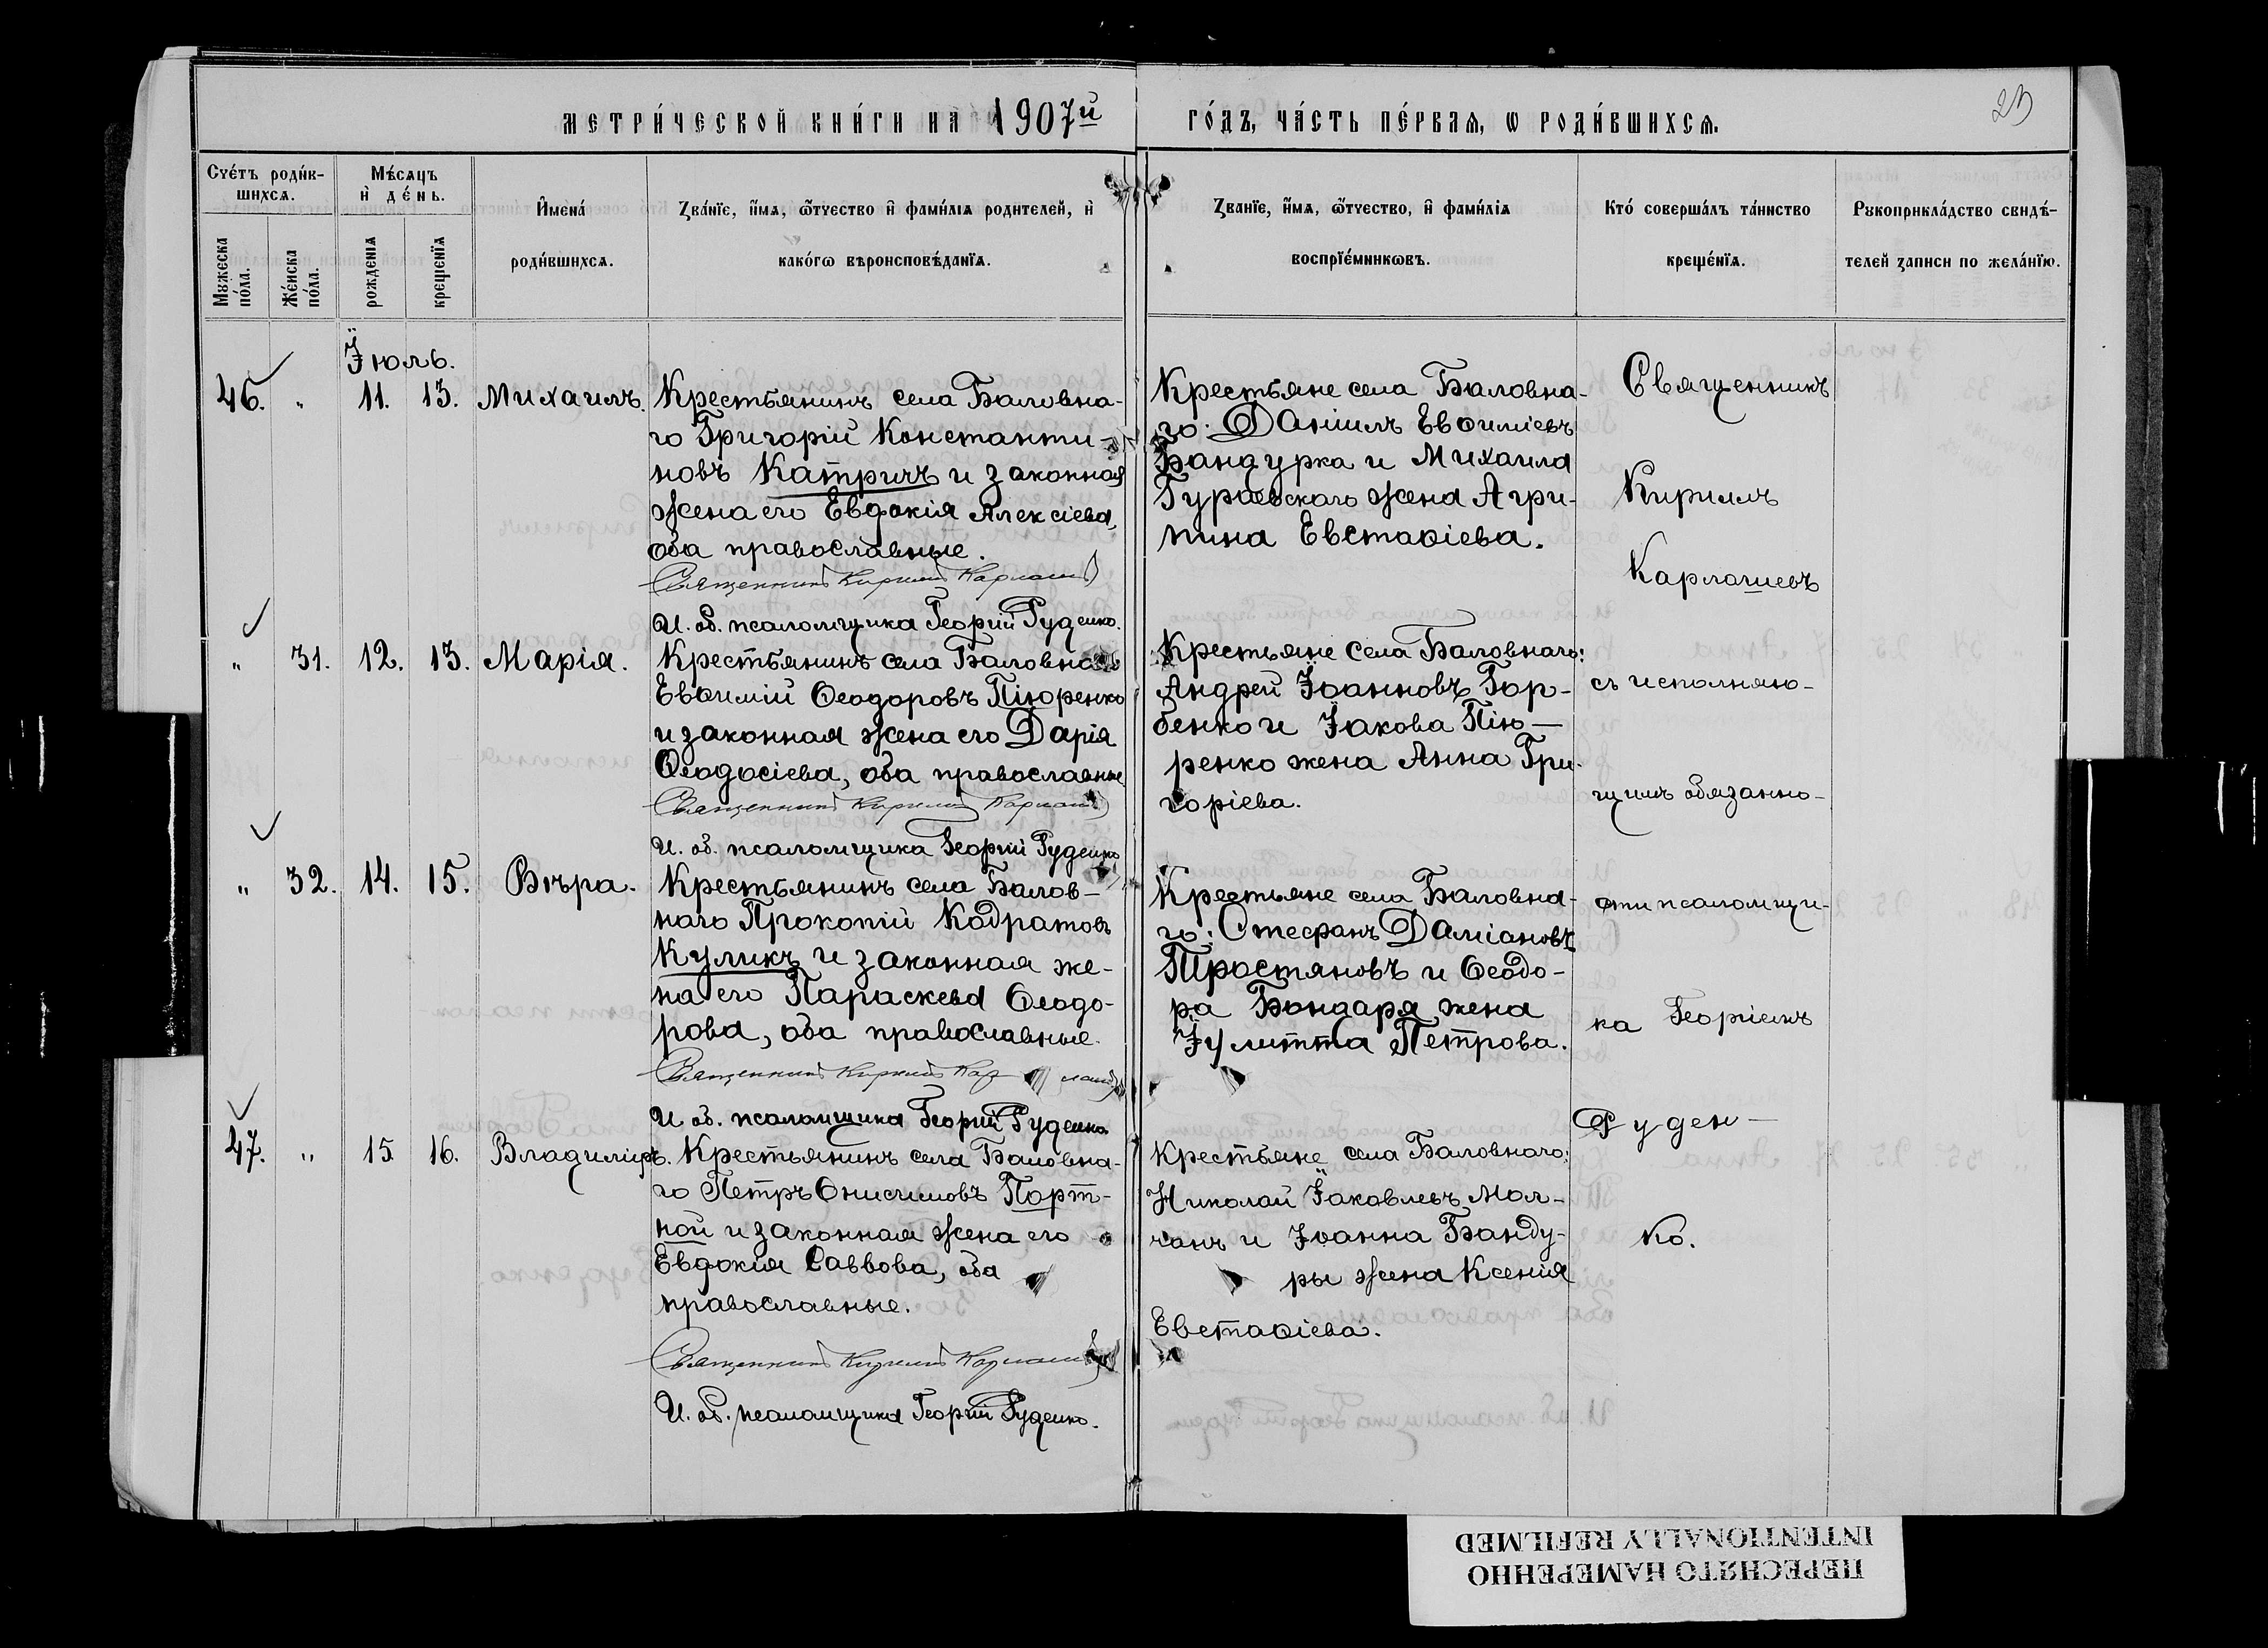 МЕТРИ́ЧЕСКОЙ КНИ́ГИ НА 1907й
ГО́ДЪ, ЧА́СТЬ ПЕ́РВАЯ, Ѡ РОДИ́ВШИХСѦ.
23
Счéтъ роди́в-
шихсѧ.
Мѣ́сѧцъ
и҆ дéнь.
Мꙋжеска
по́ла.
Же́нска
по́ла.
рожденїѧ
крещенїѧ
И҆мена́
роди́вшихсѧ.
Зва́нїе, и҆́мѧ, ѻ҆́тчество и҆ фами́лїѧ родителей, и҆
како́гѡ вѣроисповѣ́данїѧ.
Званїе, и҆́мѧ, ѻ҆́тчество, и҆ фами́лїѧ
воспрїе́мникѡвъ.
Кто́ соверша́лъ та́инство
креще́нїѧ.
Рꙋкоприкла́дство свидѣ́-
телей записи по жела́нїю.
Іюль.
46. " 11. 13. Михаилъ.
Крестьянинъ села Баловна-
го Григорій Константи-
новъ Катричъ и законная
жена его Евдокія Алексіева,
оба православные.
Священникъ Кирилъ
И. об. псаломщика Георгій Руденко.
Крестьяне села Баловна-
го: Даніилъ Евѳиміевъ
Бандурка и Михаила
Гураевскаго жена Агри-
пина Евстаѳіева.
" 31. 12. 13. Марія.
Крестьянинъ села Баловнаго
Евѳимій Ѳеодоровъ Піюренко
и законная жена его Дарія
Ѳеодосіева, оба православные
Священникъ Кирилъ
И. об. псаломщика Георгій Руденко
Крестьяне села Баловнаго:
Андрей Іоанновъ Гор-
бенко и Іакова Пію-
ренко жена Анна Гри-
горіева.
" 32. 14. 15. Вѣра.
Крестьянинъ села Балов-
наго Прокопій Кодратовъ
Куликъ и законная же-
на его Параскева Ѳеодо-
рова, оба православные.
Священникъ Кирилъ
И. об. псаломщика Георгій Руденко
Крестьяне села Баловна-
го: Стефанъ Даміановъ
Тростяновъ и Ѳеодо-
ра Бондаря жена
Іулитта Петрова.
47. " 15. 16. Владиміръ.
Крестьянинъ села Баловна-
го Петръ Онисимовъ Порт-
ной и законная жена его
Евдокія Саввова, оба
православные.
Священникъ Кирилъ
И. об. псаломщика Георгій Руденко.
Крестьяне села Баловнаго:
Николай Іаковлевъ Мол-
чанъ и Іоанна Банду-
ры жена Ксенія
Евстаѳіева.
Священникъ
Кирилъ
съ исполняю-
щимъ обязанно-
сти псаломщи-
ка Георгіемъ
Руден-
ко.
ПЕРЕСНЯТО НАМЕРЕННО
INTENTIONALLY REFILMED